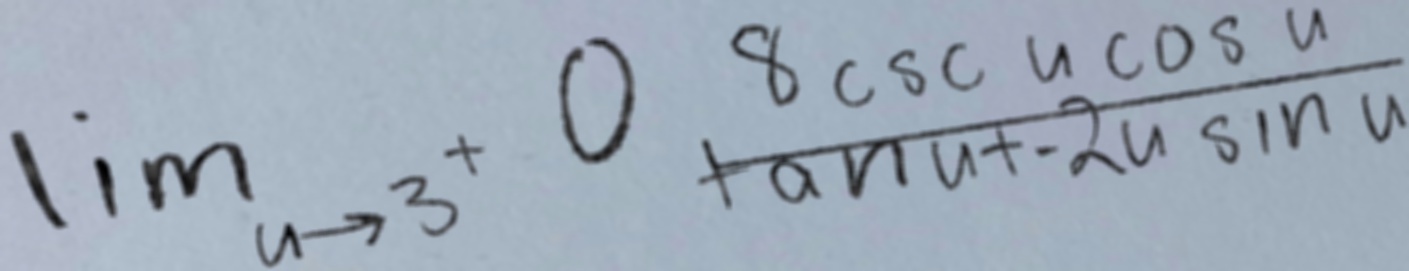 \lim_{u \to 3^+} 0 \frac{8 \csc u \cos u}{\tan u + -2u \sin u}